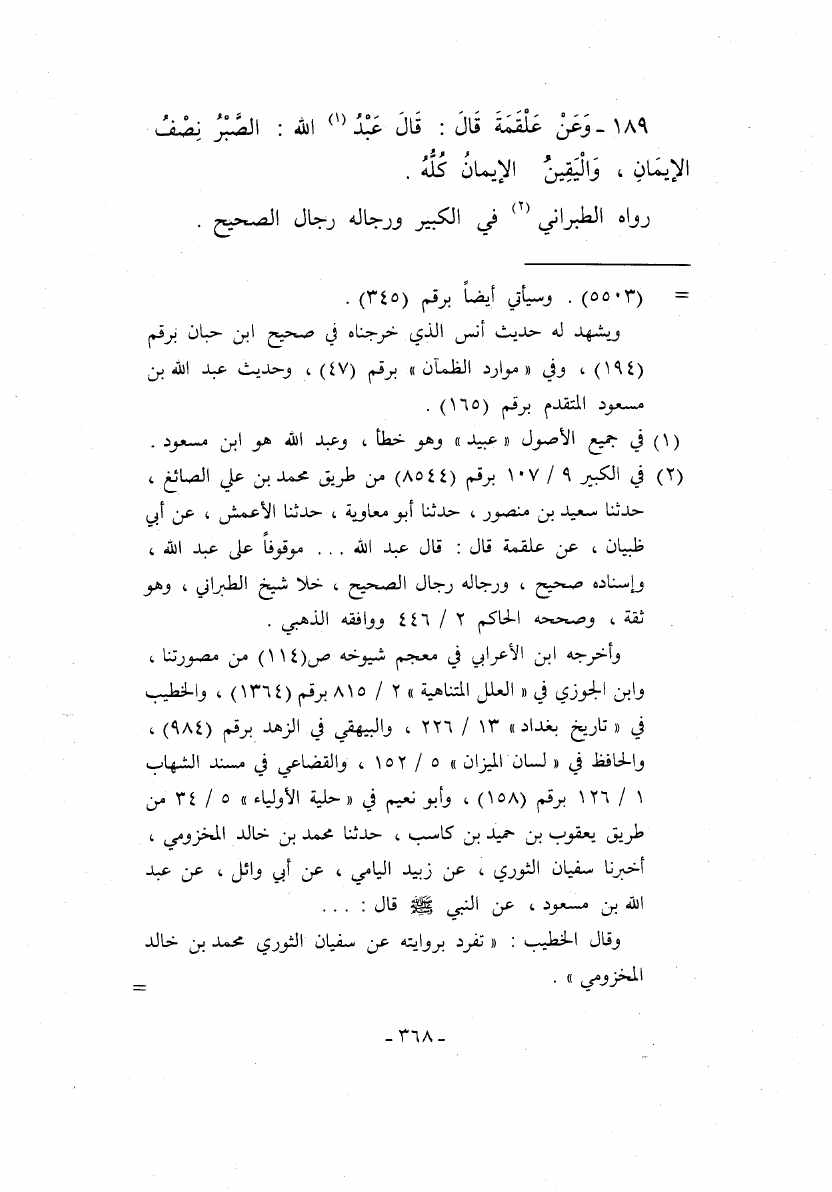 ١٨٩ - وَعَنْ عَلْقَمَةَ قَالَ : قَالَ عَبْدُ (١) الله : الصَّبْرُ نِصْفُ
الإِيمَانِ ، وَالْيَقِينُ الإِيمانُ كُلُّهُ .
رواه الطبراني (٢) في الكبير ورجاله رجال الصحيح .
= (٥٥٠٣) . وسيأتي أيضاً برقم (٣٤٥) .
ويشهد له حديث أنس الذي خرجناه في صحيح ابن حبان برقم
(١٩٤) ، وفي « موارد الظمآن » برقم (٤٧) ، وحديث عبد الله بن
مسعود المتقدم برقم (١٦٥) .
(١) في جميع الأصول « عبيد » وهو خطأ ، وعبد الله هو ابن مسعود .
(٢) في الكبير ٩ / ١٠٧ برقم (٨٥٤٤) من طريق محمد بن علي الصائغ ،
حدثنا سعيد بن منصور ، حدثنا أبو معاوية ، حدثنا الأعمش ، عن أبي
ظبيان ، عن علقمة قال : قال عبد الله ... موقوفاً على عبد الله ،
وإسناده صحيح ، ورجاله رجال الصحيح ، خلا شيخ الطبراني ، وهو
ثقة ، وصححه الحاكم ٢ / ٤٤٦ ووافقه الذهبي .
وأخرجه ابن الأعرابي في معجم شيوخه ص(١١٤) من مصورتنا ،
وابن الجوزي في « العلل المتناهية » ٢ / ٨١٥ برقم (١٣٦٤) ، والخطيب
في « تاريخ بغداد » ١٣ / ٢٢٦ ، والبيهقي في الزهد برقم (٩٨٤) ،
والحافظ في « لسان الميزان » ٥ / ١٥٢ ، والقضاعي في مسند الشهاب
١ / ١٢٦ برقم (١٥٨) ، وأبو نعيم في « حلية الأولياء » ٥ / ٣٤ من
طريق يعقوب بن حميد بن كاسب ، حدثنا محمد بن خالد المخزومي ،
أخبرنا سفيان الثوري ، عن زبيد اليامي ، عن أبي وائل ، عن عبد
الله بن مسعود ، عن النبي ﷺ قال : ...
وقال الخطيب : « تفرد بروايته عن سفيان الثوري محمد بن خالد
المخزومي » .
=
- ٣٦٨ -